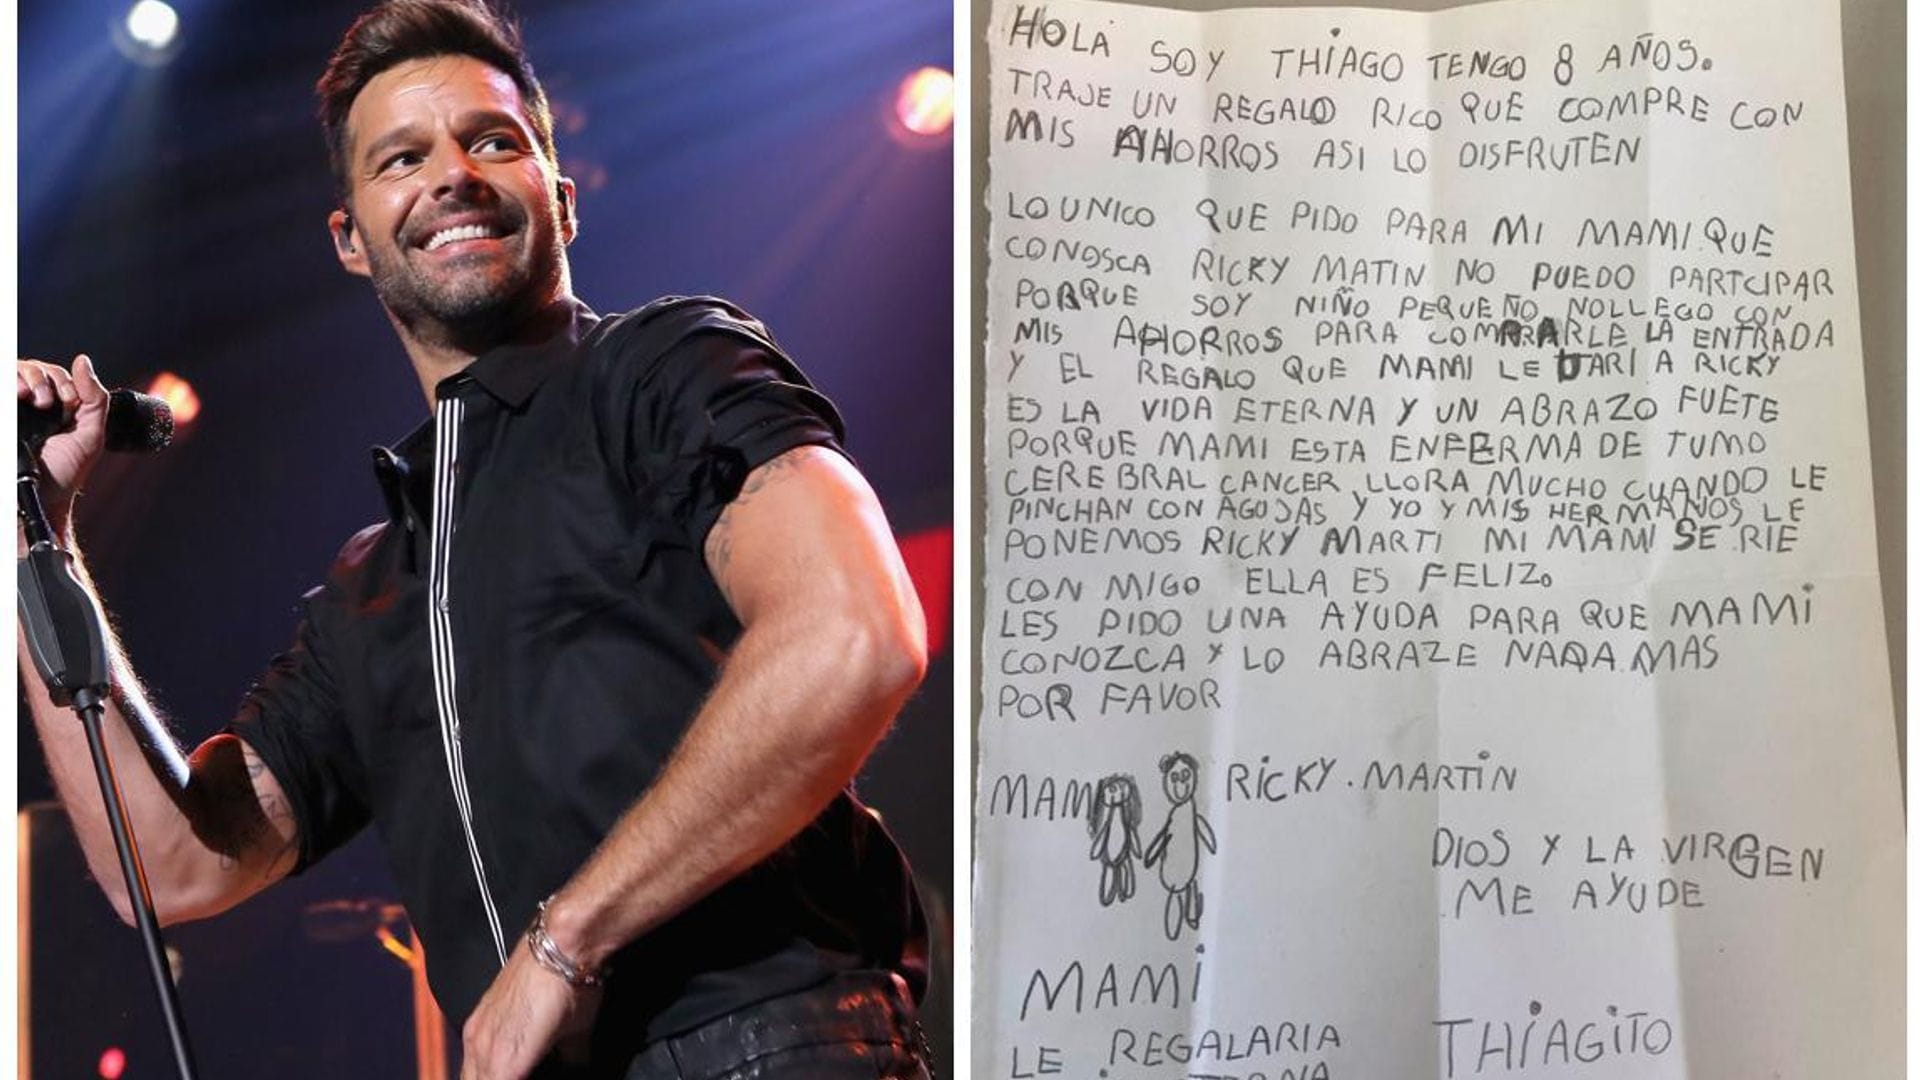 HOLA SOY THIAGO TENGO 8 AÑOS.
TRAJE UN REGALO RICO QUE COMPRE CON
MIS AHORROS ASI LO DISFRUTEN
LO UNICO QUE PIDO PARA MI MAMI QUE
CONOSCA RICKY MATIN NO PUEDO PARTCIPAR
PORQUE SOY NIÑO PEQUEÑO NOLLEGO CON
MIS AHORROS PARA COMPRARLE LA ENTRADA
Y EL REGALO QUE MAMI LE DARI A RICKY
ES LA VIDA ETERNA Y UN ABRAZO FUETE
PORQUE MAMI ESTA ENFERMA DE TUMO
CEREBRAL CANCER LLORA MUCHO CUANDO LE
PINCHAN CON AGUJAS Y YO Y MIS HERMANOS LE
PONEMOS RICKY MARTI MI MAMI SE RIE
CON MIGO ELLA ES FELIZ.
LES PIDO UNA AYUDA PARA QUE MAMI
CONOZCA Y LO ABRAZE NADA MAS
POR FAVOR
MAMI RICKY. MARTIN
DIOS Y LA VIRGEN
ME AYUDE
MAMI
LE REGALARIA THIAGITO